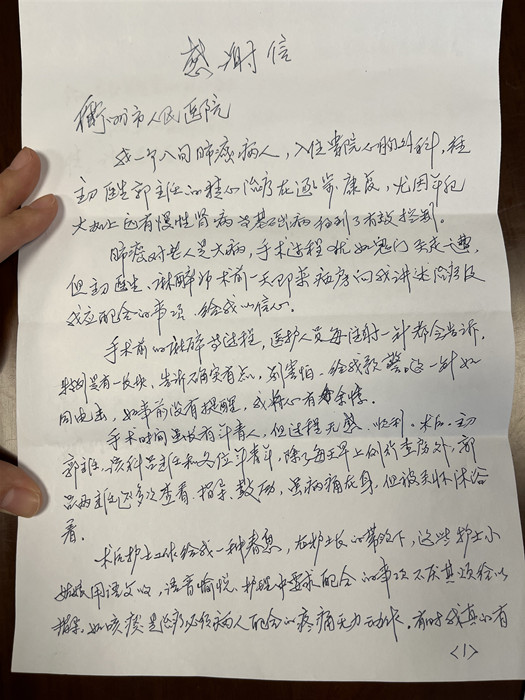 感谢信
衢州市人民医院
我一个八旬肺癌病人，入住贵院心胸外科，经
主刀医生郭主任的精心治疗在逐步康复，尤因年纪
大加上还有慢性肾病等基础病得到了有效控制。
肺癌对老人是大病，手术过程犹如鬼门关走一趟，
但主刀医生、麻醉师术前一天即来病房向我讲述治疗及
我应配合的事项，给我以信心。
手术前的麻醉等过程，医护人员每注射一针都会告诉，
特别是有一针，告诉确实有点，别害怕，给我敲警。这一针如
同电击，如事前没有提醒，我将心有余悸。
手术时间虽长有年青人，但过程无憾、顺利。术后，主刀
郭主任、该科吕主任和各位年青，除了每天早上例行查房外，郭
吕两主任还多次查看、指导、鼓励，虽病痛在身，但被关怀沐浴
着。
术后护士工作给我一种春意，在护士长的带领下，这些护士小
姑娘用语文明，语音愉悦，护理中要求配合的事项不厌其烦给以
指导，如咳痰是治疗必须病人配合的疼痛无力动作。有时我真的有
<1>